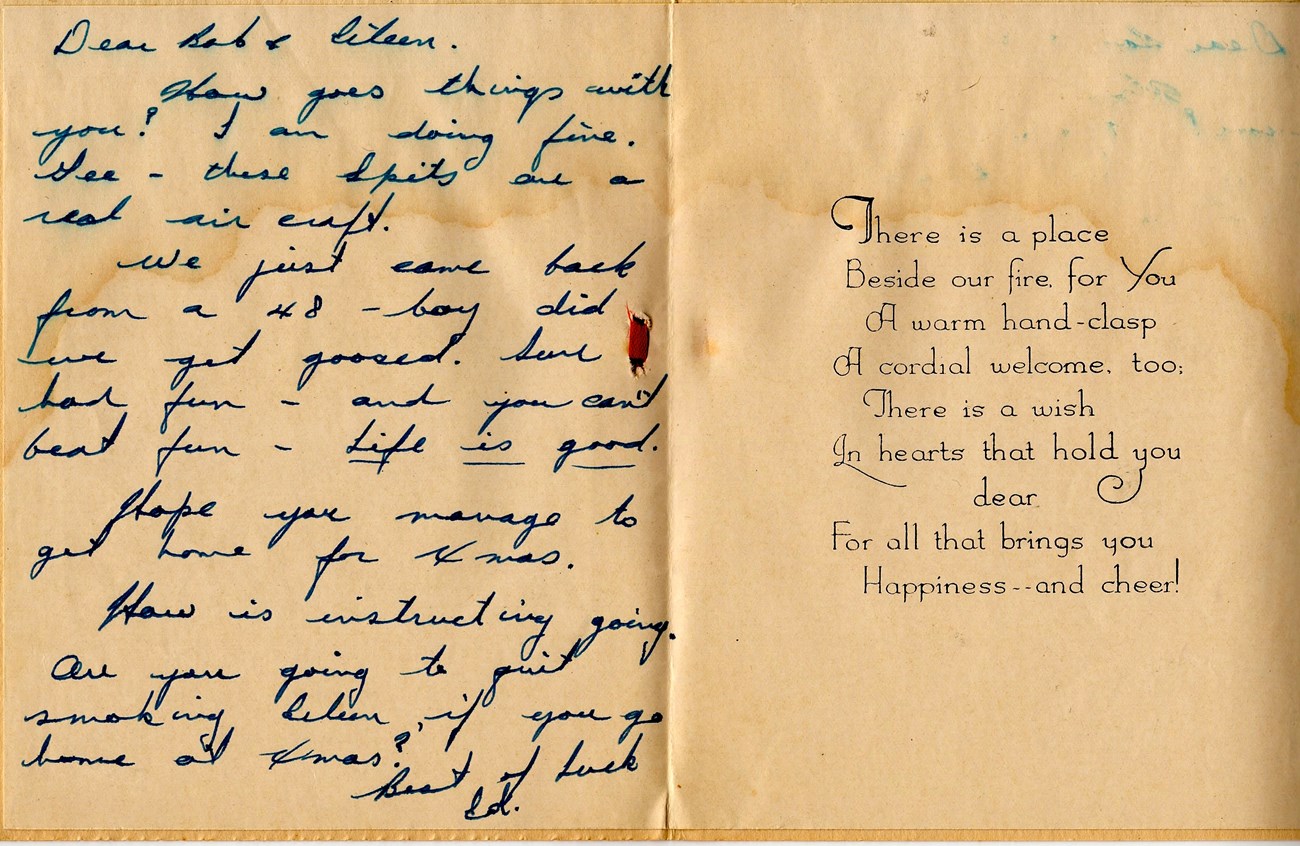 Dear Bob & Eileen.
How goes things with
you? I am doing fine.
Gee - these Spits are a
real air craft.
We just came back
from a 48 - boy did
we get goosed. Sure
had fun - and you can't
beat fun - Life is good.
Hope you manage to
get home for Xmas.
How is instructing going.
Are you going to quit
smoking Eileen, if you go
home at Xmas?
Best of Luck
Ed.
There is a place
Beside our fire, for You
A warm hand-clasp
A cordial welcome, too;
There is a wish
In hearts that hold you
dear
For all that brings you
Happiness--and cheer!